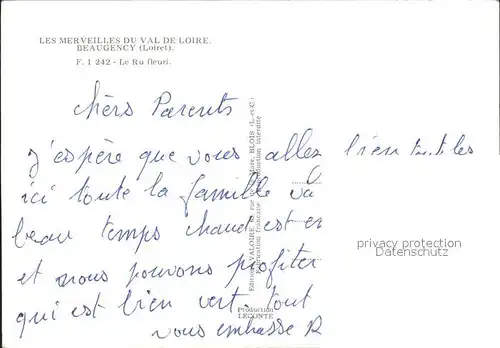 LES MERVEILLES DU VAL DE LOIRE.
BEAUGENCY (Loiret).
F. 1 242 - Le Ru fleuri.
chers Parents
J'espère que vous allez bien tous les
ici toute la famille va
beau temps chaud est en
et nous pouvons profiter
qui est bien vert. tout
vous embrasse R
Production
LECONTE
privacy protection
Datenschutz